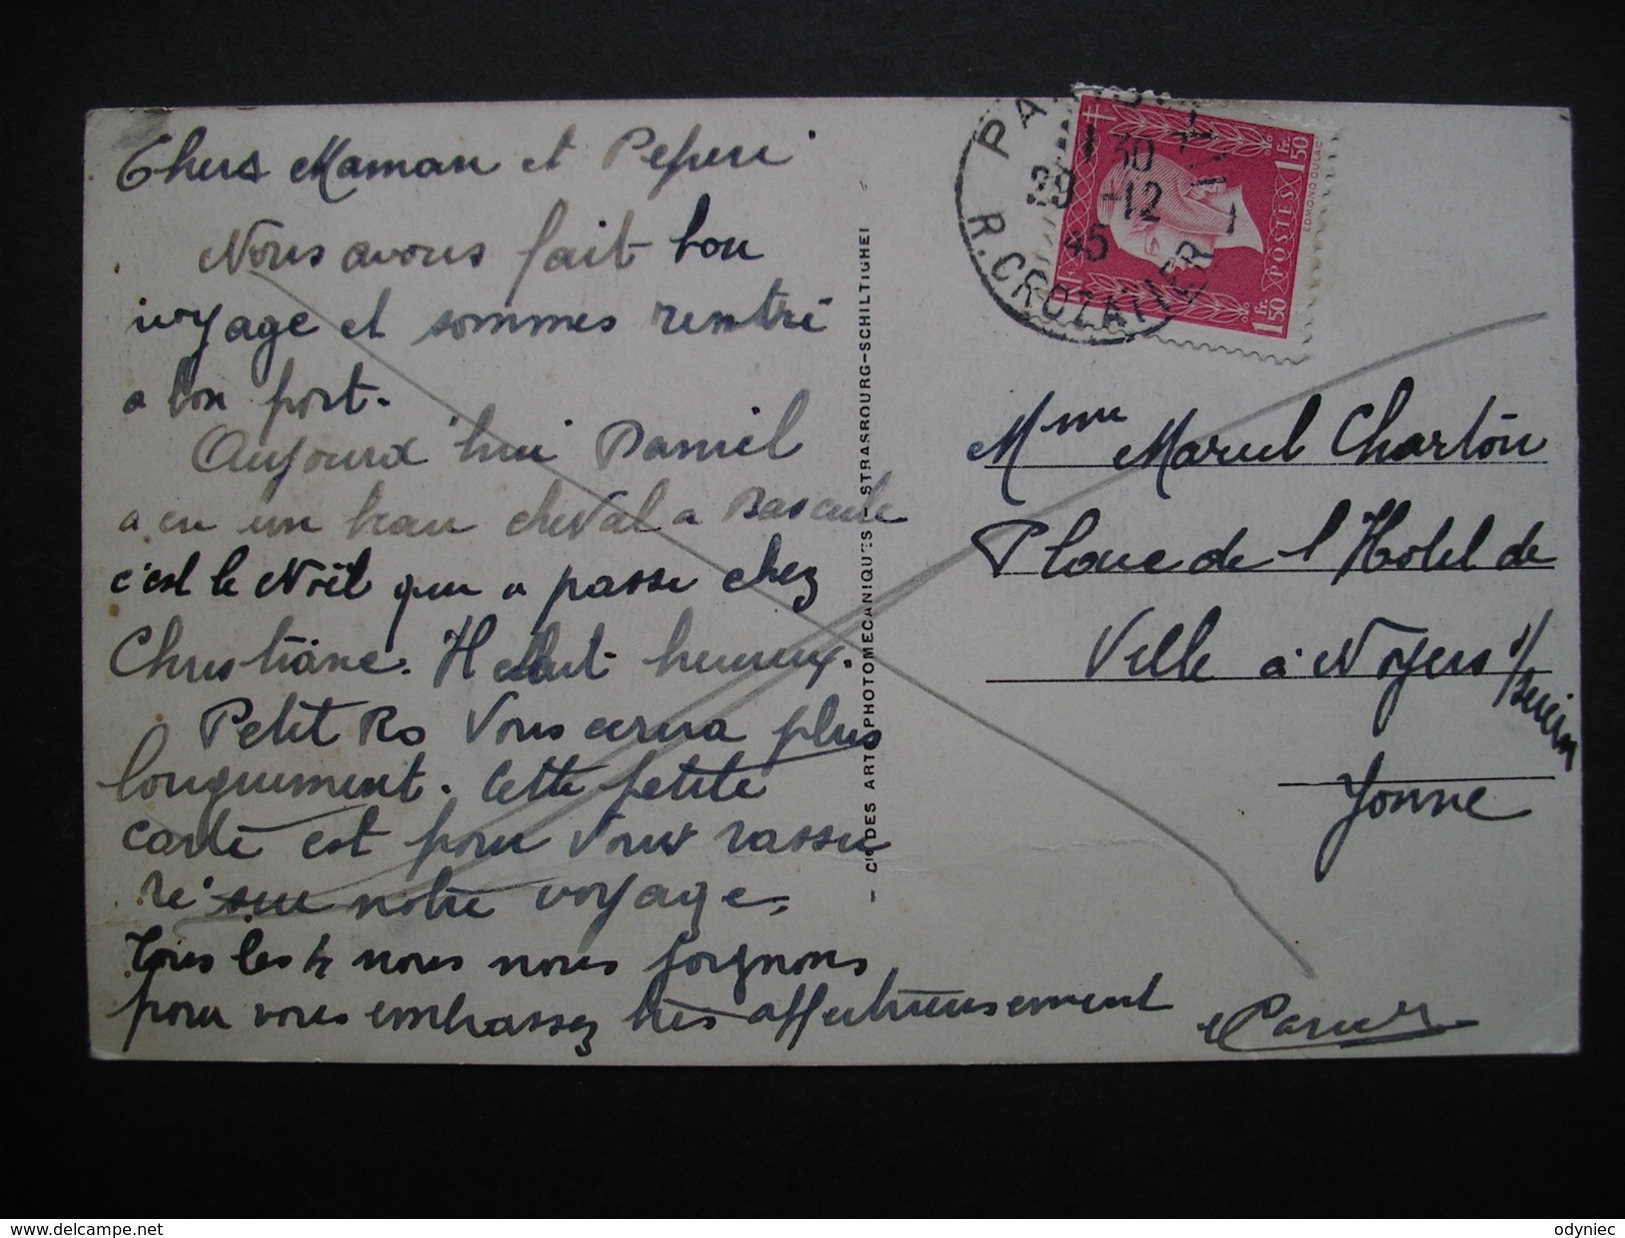 Chers Maman et Peperi
Nous avons fait bon
voyage et sommes rentré
a bon port.
Aujourd'hui Daniel
a eu un beau cheval a Bascule
c'est le Noël qui a passé chez
Christiane. Il etait heureux.
Petit Ro Vous ecrira plus
longuement. Cette petite
carte est pour Vous rassu
ré sur notre voyage.
Tous les 4 nous nous joignons
pour vous embrassez très affectueusement
PA
1 30
29 -12
45
R. CROZATIER
1 Fr. 50
POSTES
EDMOND DULAC
1 Fr. 50
- CIE DES ARTS PHOTOMECANIQUES - STRASBOURG-SCHILTIGHEIM
Mme Marcel Charton
Place de l'Hotel de
Ville à Noyers s/Serein
Yonne
odyniec
http://www.delcampe.net